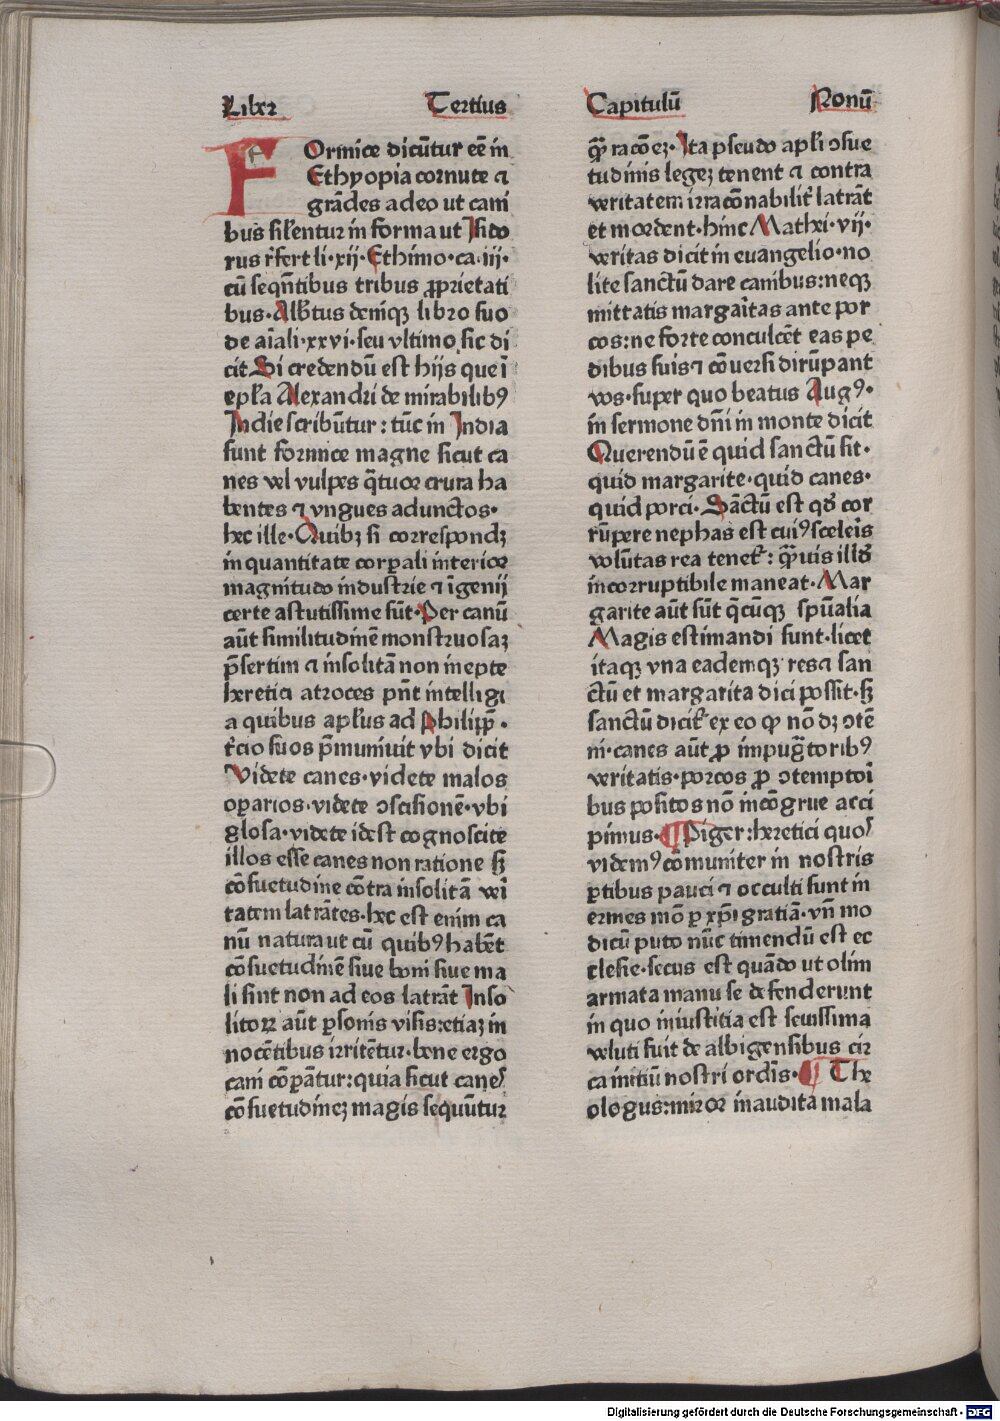 Liber Tertius
FOrmice dicūtur eē in
Ethyopia cornute ⁊
grādes adeo ut cani
bus sil'entur in forma ut Isido
rus r̄fert li·xij·Ethimo·ca·iij·
cū seqn̄tibus tribus ꝓprietati
bus·Alb̄tus deniqꝫ libro suo
de aīali·xxvi·seu vltimo sic di
cit Si credendū est hijs que ī
epl'a Alexandri de mirabilibꝰ
Indie scribūtur: tūc in India
sunt formice magne sicut ca
nes vel vulpes q̄tuor crura ha
bentes ⁊ vngues adunctos·
hec ille·Quibꝫ si correspondꝫ
in quantitate corꝑali interior
magnitudo industrie ⁊ īgenij
certe astutissime sūt·Per canū
aūt similitudinē monstruosaꝫ
p̄sertim ⁊ insolitā non inepte
heretici atroces pn̄t intelligi
a quibus apl'us ad Philipp̄·
t'cio suos p̄muniuit vbi dicit
Videte canes·videte malos
oꝑarios·videte ꝯscisionē·vbi
glosa·videte idest cognoscite
illos esse canes non ratione sꝫ
cōsuetudine cōtra insolitā veri
tatem latrātes·hec est enim ca
nū natura ut cū quibꝰ habēt
cōsuetudinē siue boni siue ma
li sint non ad eos latrāt Inso
litoꝝ aūt ꝑsonis visis:etiaꝫ in
nocētibus irritētur·bene ergo
cani cōꝑātur:quia sicut canes
cōsuetudineꝫ magis sequūtur
Capitulū Nonū
qꝫ racōeꝫ·Ita pseudo apl'i ꝯsue
tudinis legeꝫ tenent ⁊ contra
veritatem irracōnabilit' latrāt
et mordent·hinc Mathei·vij·
veritas dicit in euangelio·no
lite sanctū dare canibus:neqꝫ
mittatis margaritas ante por
cos:ne forte conculcēt eas pe
dibus suis⁊ cōuersi dirūpant
vos·super quo beatus Augꝰ·
in sermone dn̄i in monte dicit
Querendū ē quid sanctū sit·
quid margarite·quid canes·
quid porci·Sāctū est qd' cor
rūpere nephas est cuiꝰ sceleris
volūtas rea tenet':qūis illud
incorruptibile maneat·Mar
garite aūt sūt q̄cūqꝫ spūalia
Magis estimandi sunt·licet
itaqꝫ vna eademqꝫ res⁊ san
ctū et margarita dici possit·sꝫ
sanctū dicit' ex eo qꝫ nō dꝫ ꝯtē
ni·canes aūt ꝓ impugtoribꝰ
veritatis·porcos ꝓ ꝯtemptori
bus positos nō incōgrue acci
pimus·¶Piger:heretici quos
videmꝰ cōmuniter in nostris
ꝑtibus pauci ⁊ occulti sunt in
ermes mō ꝑ xp̄i gratiā·vn̄ mo
dicū puto nūc timendū est ec
clesie·secus est quādo ut olim
armata manu se defenderunt
in quo iniustitia est seuissima
veluti fuit de albigensibus cir
ca initiū nostri ordīs·¶ The
ologus:miror inaudita mala
Digitalisierung gefördert durch die Deutsche Forschungsgemeinschaft - DFG